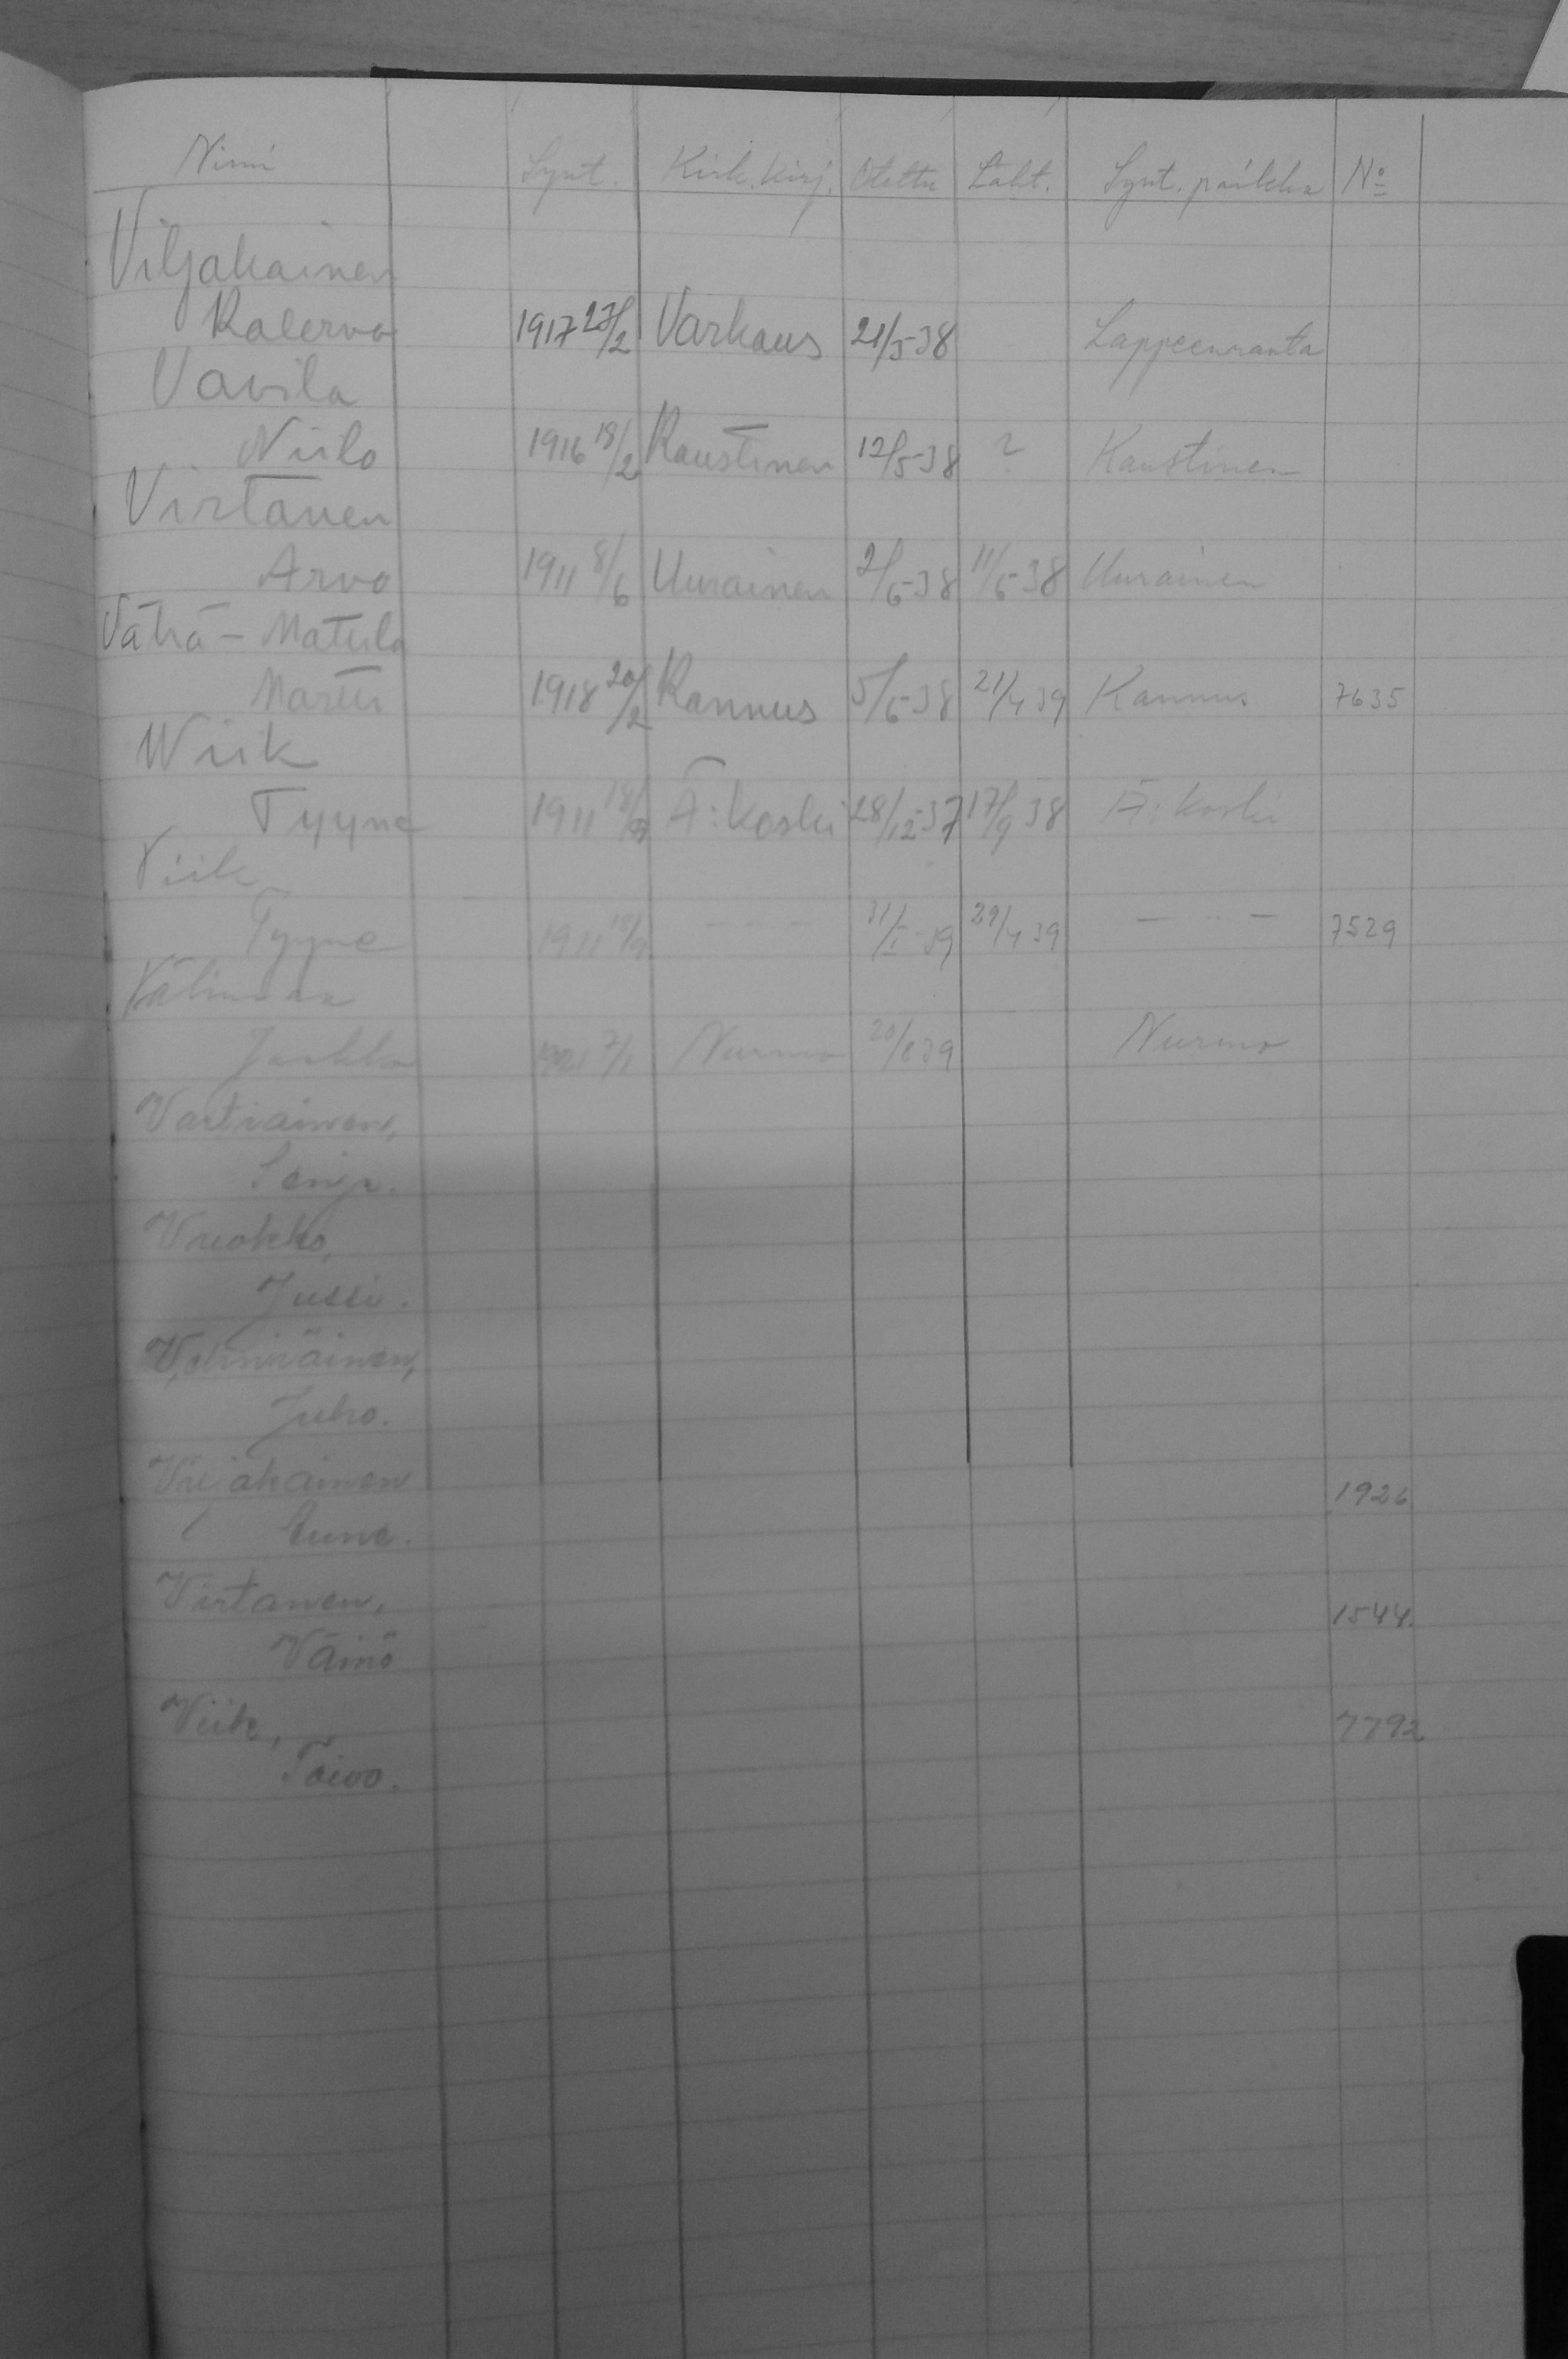 Nimi Synt. Kirk. kirj. Otettu Läht. Synt. paikka No
Viljakainen
Kalervo 1917 27/2 Varkaus 21/5-38 Lappeenranta
Vavila
Niilo 1916 18/2 Kaustinen 12/5-38 ? Kaustinen
Virtanen
Arvo 1911 8/6 Uurainen 2/6-38 11/6-38 Uurainen
Vähä-Matula
Martti 1918 20/2 Kannus 5/6-38 21/4 39 Kannus 7635
Wiik
Tyyne 1911 18/9 Ä:koski 28/12-37 17/9 38 Ä:koski
Viik
Tyyne 1911 18/9 - " - 31/1-39 29/4 39 - " - 7529
Välimaa
Jaakko 1921 7/1 Nurmo 20/8 39 Nurmo
Vartiainen,
Senja.
Vuokko,
Jussi.
Juho.
Viljakainen 1926
Aune.
Virtanen, 1544.
Väinö
Viik, 7792
Toivo.